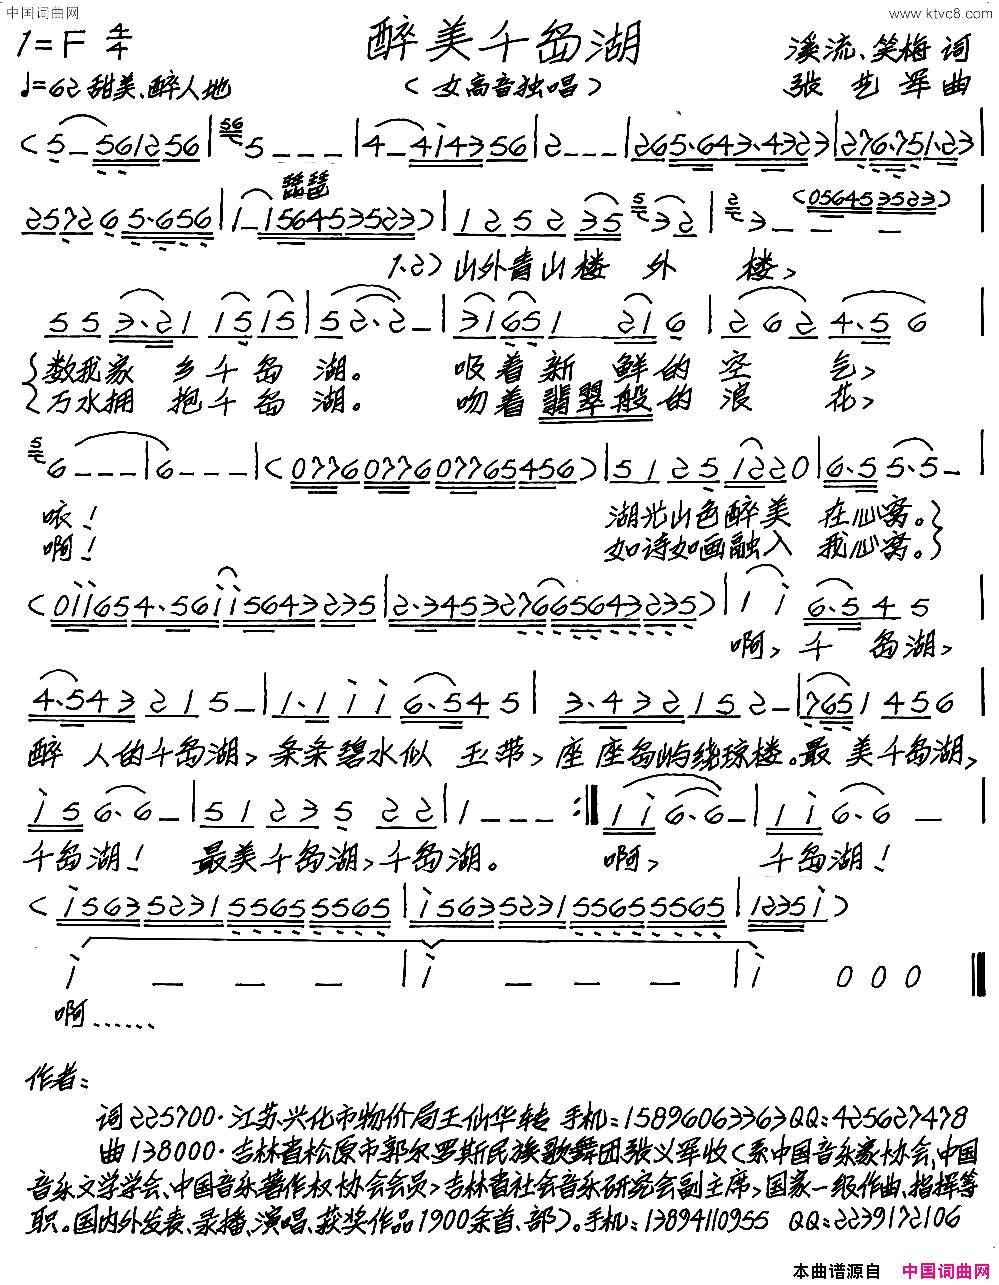 中国词曲网
www.ktvc8.com
1=F 4/4
醉美千岛湖
溪流、笑梅 词
♩=62 甜美、醉人地
(女高音独唱)
张艺军 曲
(5–561256|5–––|4–4i4356|2–––|265·643·4323|276·751·23|
琵琶
257265·656|1–156453523)|1252 35 32|3 – –
(056453523)
1.2)山外青山楼 外 楼,
553·21 1515|52·2–|31651 216|262 4·56
数我家 乡千岛 湖。 吸着新 鲜的空 气,
万水拥 抱千岛 湖。 吻着翡翠般的浪 花,
6–––|6–––|(077607760776 5456)|5125 1220|6·55·5–|
咳! 湖光山色醉美 在心窝。
啊! 如诗如画融入 我心窝。
(0ii654·56ii56432235|2·3453276656432235)|1i 6·545|
啊,千 岛湖,
4·543215–|1·1ii6·545|3·432152–|7651456
醉 人的千岛湖,条条碧水似 玉带,座座岛屿绕琼楼。最 美千岛湖,
i56·6–|5123522|1–––:‖1i6·6–|1i6·6 –
千岛湖! 最美千岛湖,千岛湖。 啊, 千岛湖!
(i563523155655565|i563523155655565|1235i)
i – – –|i – – –|i 000‖
啊……
作者:
词225700·江苏兴化市物价局王仙华转 手机:15896063363QQ:425627478
曲138000·吉林省松原市郭尔罗斯民族歌舞团张义军收(系中国音乐家协会、中国
音乐文学学会、中国音乐著作权协会会员,吉林省社会音乐研究会副主席,国家一级作曲、指挥等
职。国内外发表、录播、演唱、获奖作品1900余首、部)。手机:13894110955 QQ:2239172106
本曲谱源自 中国词曲网